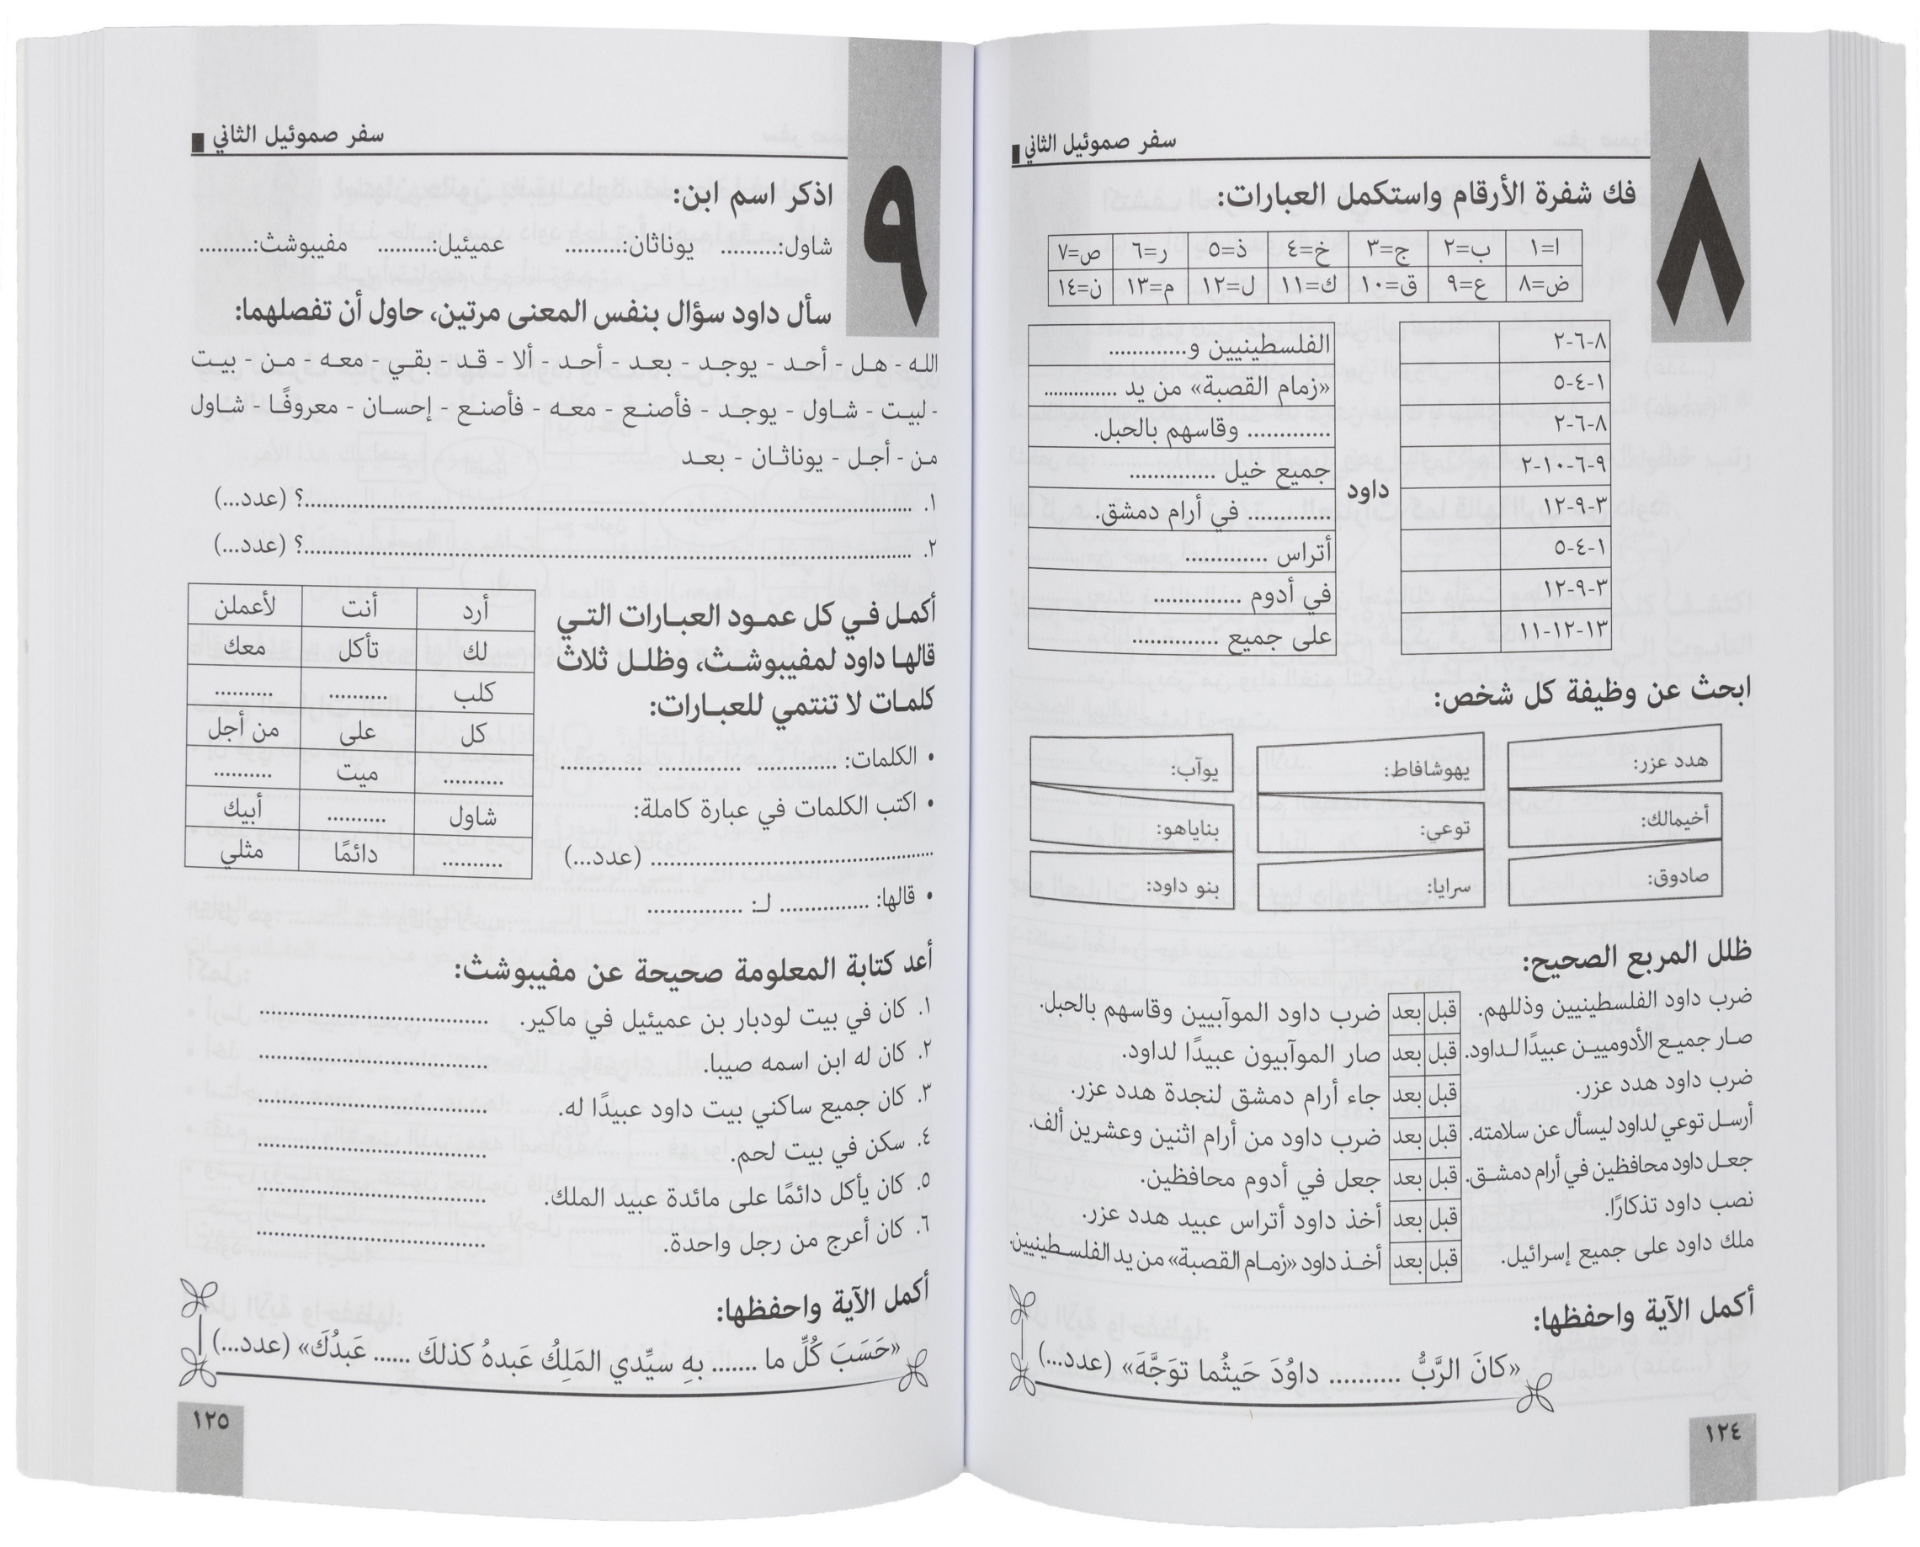 سفر صموئيل الثاني
٨
فك شفرة الأرقام واستكمل العبارات:
ا=١ ب=٢ ج=٣ خ=٤ ذ=٥ ر=٦ ص=٧
ض=٨ ع=٩ ق=١٠ ك=١١ ل=١٢ م=١٣ ن=١٤
٨-٦-٢
١-٤-٥
٨-٦-٢
٩-٦-١٠-٢
٣-٩-١٢
١-٤-٥
٣-٩-١٢
١٣-١٢-١١
داود
الفلسطينيين و.............
«زمام القصبة» من يد .............
............. وقاسهم بالحبل.
جميع خيل .............
............. في أرام دمشق.
أتراس .............
في أدوم .............
على جميع .............
ابحث عن وظيفة كل شخص:
هدد عزر: يهوشافاط: يوآب:
أخيمالك: توعي: بناياهو:
صادوق: سرايا: بنو داود:
ظلل المربع الصحيح:
ضرب داود الفلسطينيين وذللهم. قبل بعد ضرب داود الموآبيين وقاسهم بالحبل.
صار جميع الأدوميين عبيدًا لداود. قبل بعد صار الموآبيون عبيدًا لداود.
ضرب داود هدد عزر. قبل بعد جاء أرام دمشق لنجدة هدد عزر.
أرسل توعي لداود ليسأل عن سلامته. قبل بعد ضرب داود من أرام اثنين وعشرين ألف.
جعل داود محافظين في أرام دمشق. قبل بعد جعل في أدوم محافظين.
نصب داود تذكارًا. قبل بعد أخذ داود أتراس عبيد هدد عزر.
ملك داود على جميع إسرائيل. قبل بعد أخذ داود «زمام القصبة» من يد الفلسطينيين.
أكمل الآية واحفظها:
«كانَ الرَّبُّ .......... داوُدَ حَيثُما توَجَّهَ» (عدد...)
١٢٤
سفر صموئيل الثاني
٩
اذكر اسم ابن:
شاول:......... يوناثان:......... عميئيل:......... مفيبوشث:.........
سأل داود سؤال بنفس المعنى مرتين، حاول أن تفصلهما:
الله - هل - أحد - يوجد - بعد - أحد - ألا - قد - بقي - معه - من - بيت
- لبيت - شاول - يوجد - فأصنع - معه - فأصنع - إحسان - معروفًا - شاول
من - أجل - يوناثان - بعد
١. ..........................................................................؟ (عدد...)
٢. ..........................................................................؟ (عدد...)
أكمل في كل عمود العبارات التي
قالها داود لمفيبوشث، وظلل ثلاث
كلمات لا تنتمي للعبارات:
• الكلمات: ............ ............ ............
• اكتب الكلمات في عبارة كاملة:
........................................ (عدد...)
• قالها: .............. لـ: ..............
أرد أنت لأعملن
لك تأكل معك
كلب .......... ..........
كل على من أجل
.......... ميت ..........
شاول .......... أبيك
.......... دائمًا مثلي
أعد كتابة المعلومة صحيحة عن مفيبوشث:
١. كان في بيت لودبار بن عميئيل في ماكير. ..............................
٢. كان له ابن اسمه صيبا. ..............................
٣. كان جميع ساكني بيت داود عبيدًا له. ..............................
٤. سكن في بيت لحم. ..............................
٥. كان يأكل دائمًا على مائدة عبيد الملك. ..............................
٦. كان أعرج من رجل واحدة. ..............................
أكمل الآية واحفظها:
«حَسَبَ كُلِّ ما ....... بهِ سيِّدي المَلِكُ عَبدهُ كذلكَ ...... عَبدُكَ» (عدد...)
١٢٥